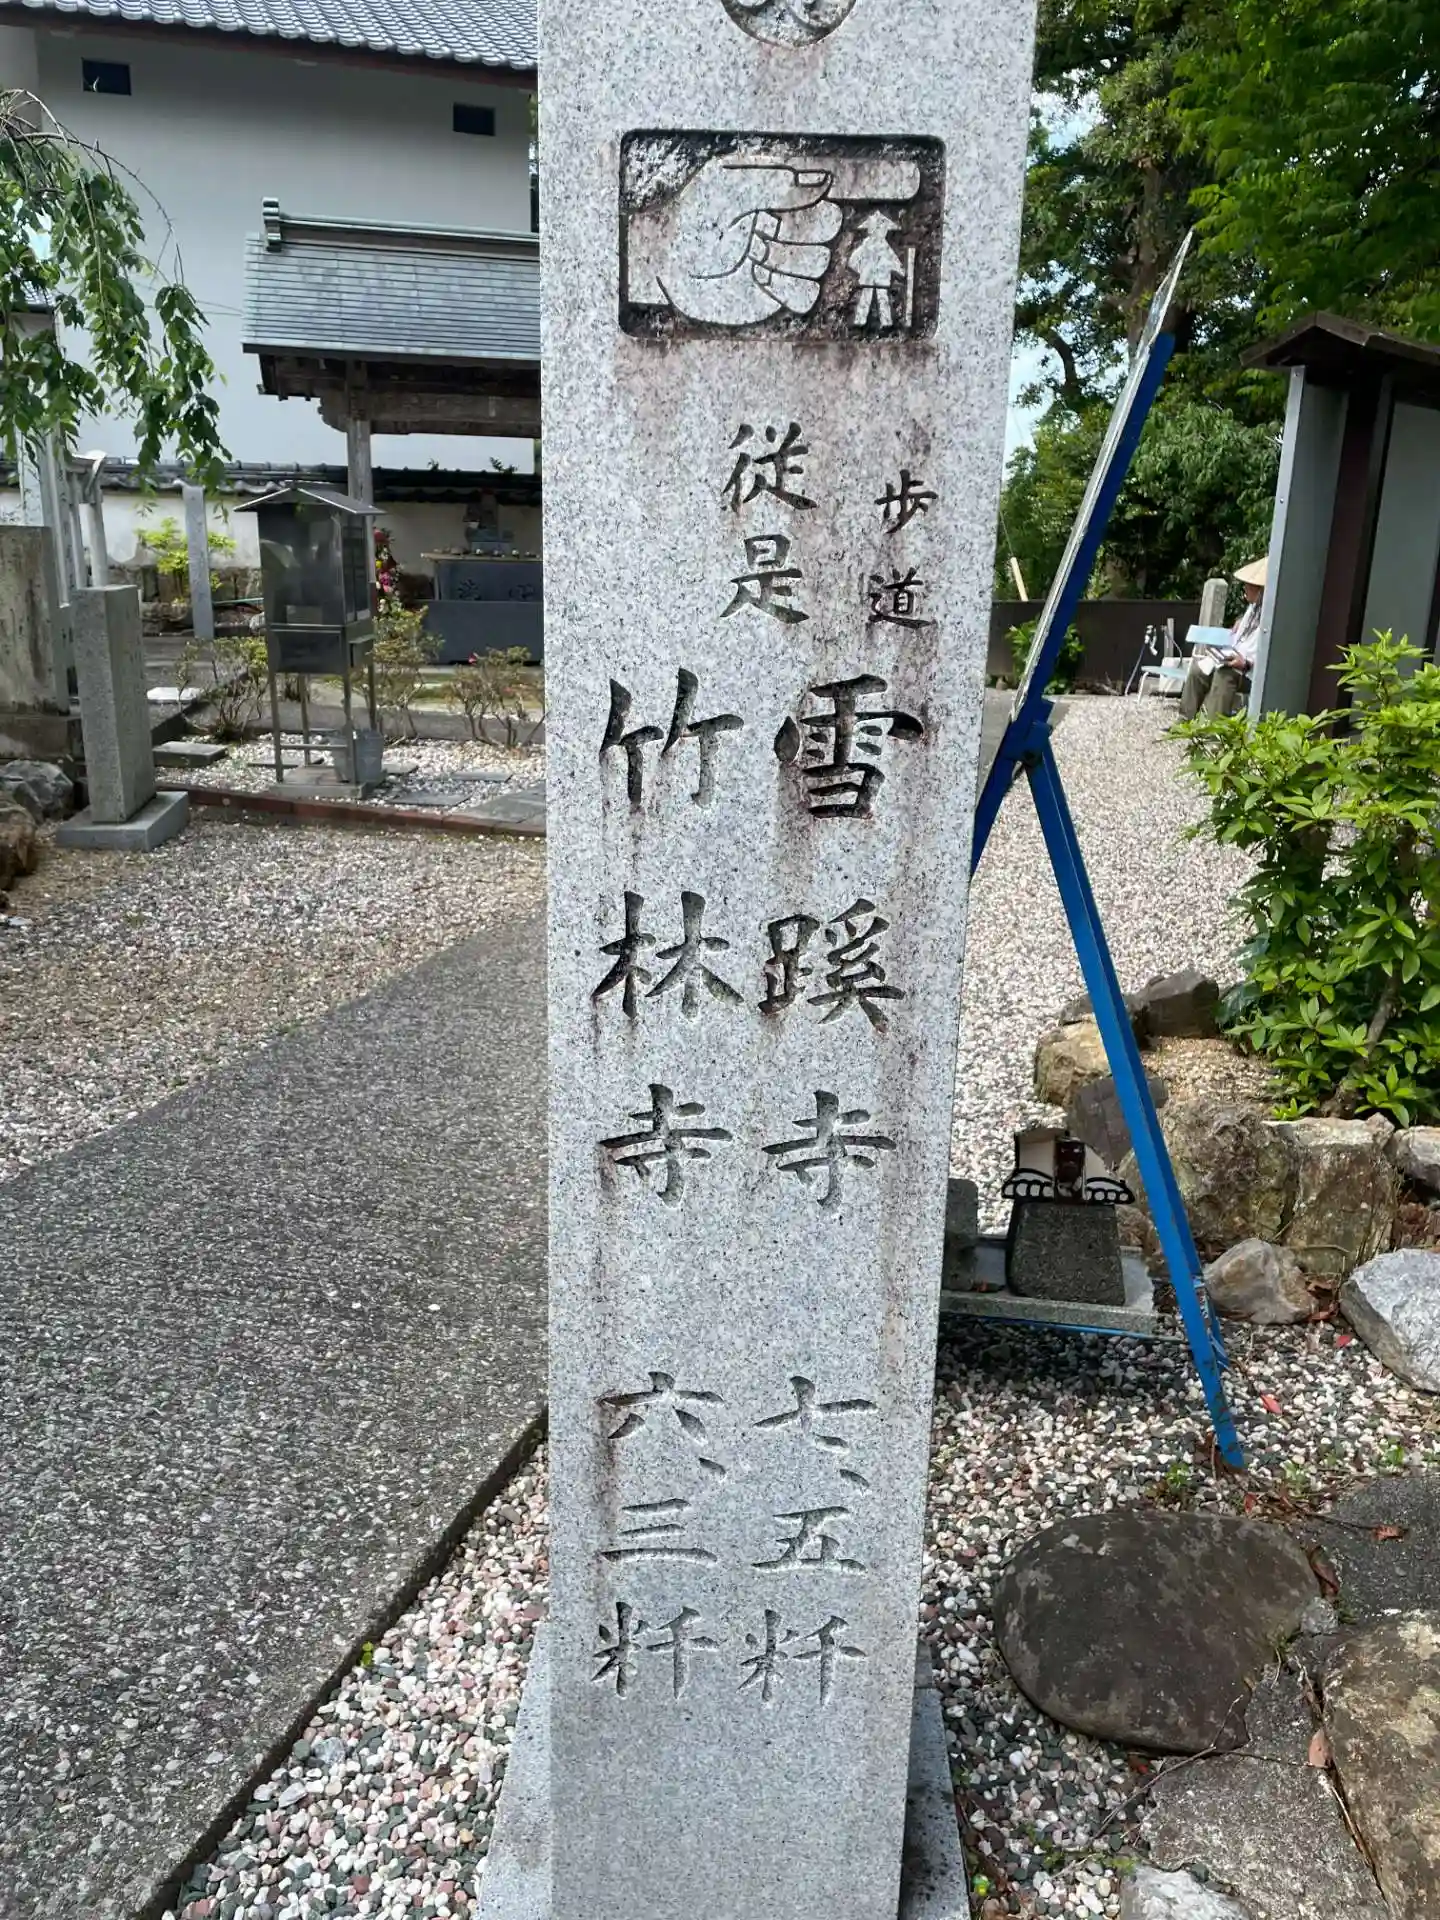 歩道
従是
雪蹊寺 七、五粁
竹林寺 六、三粁